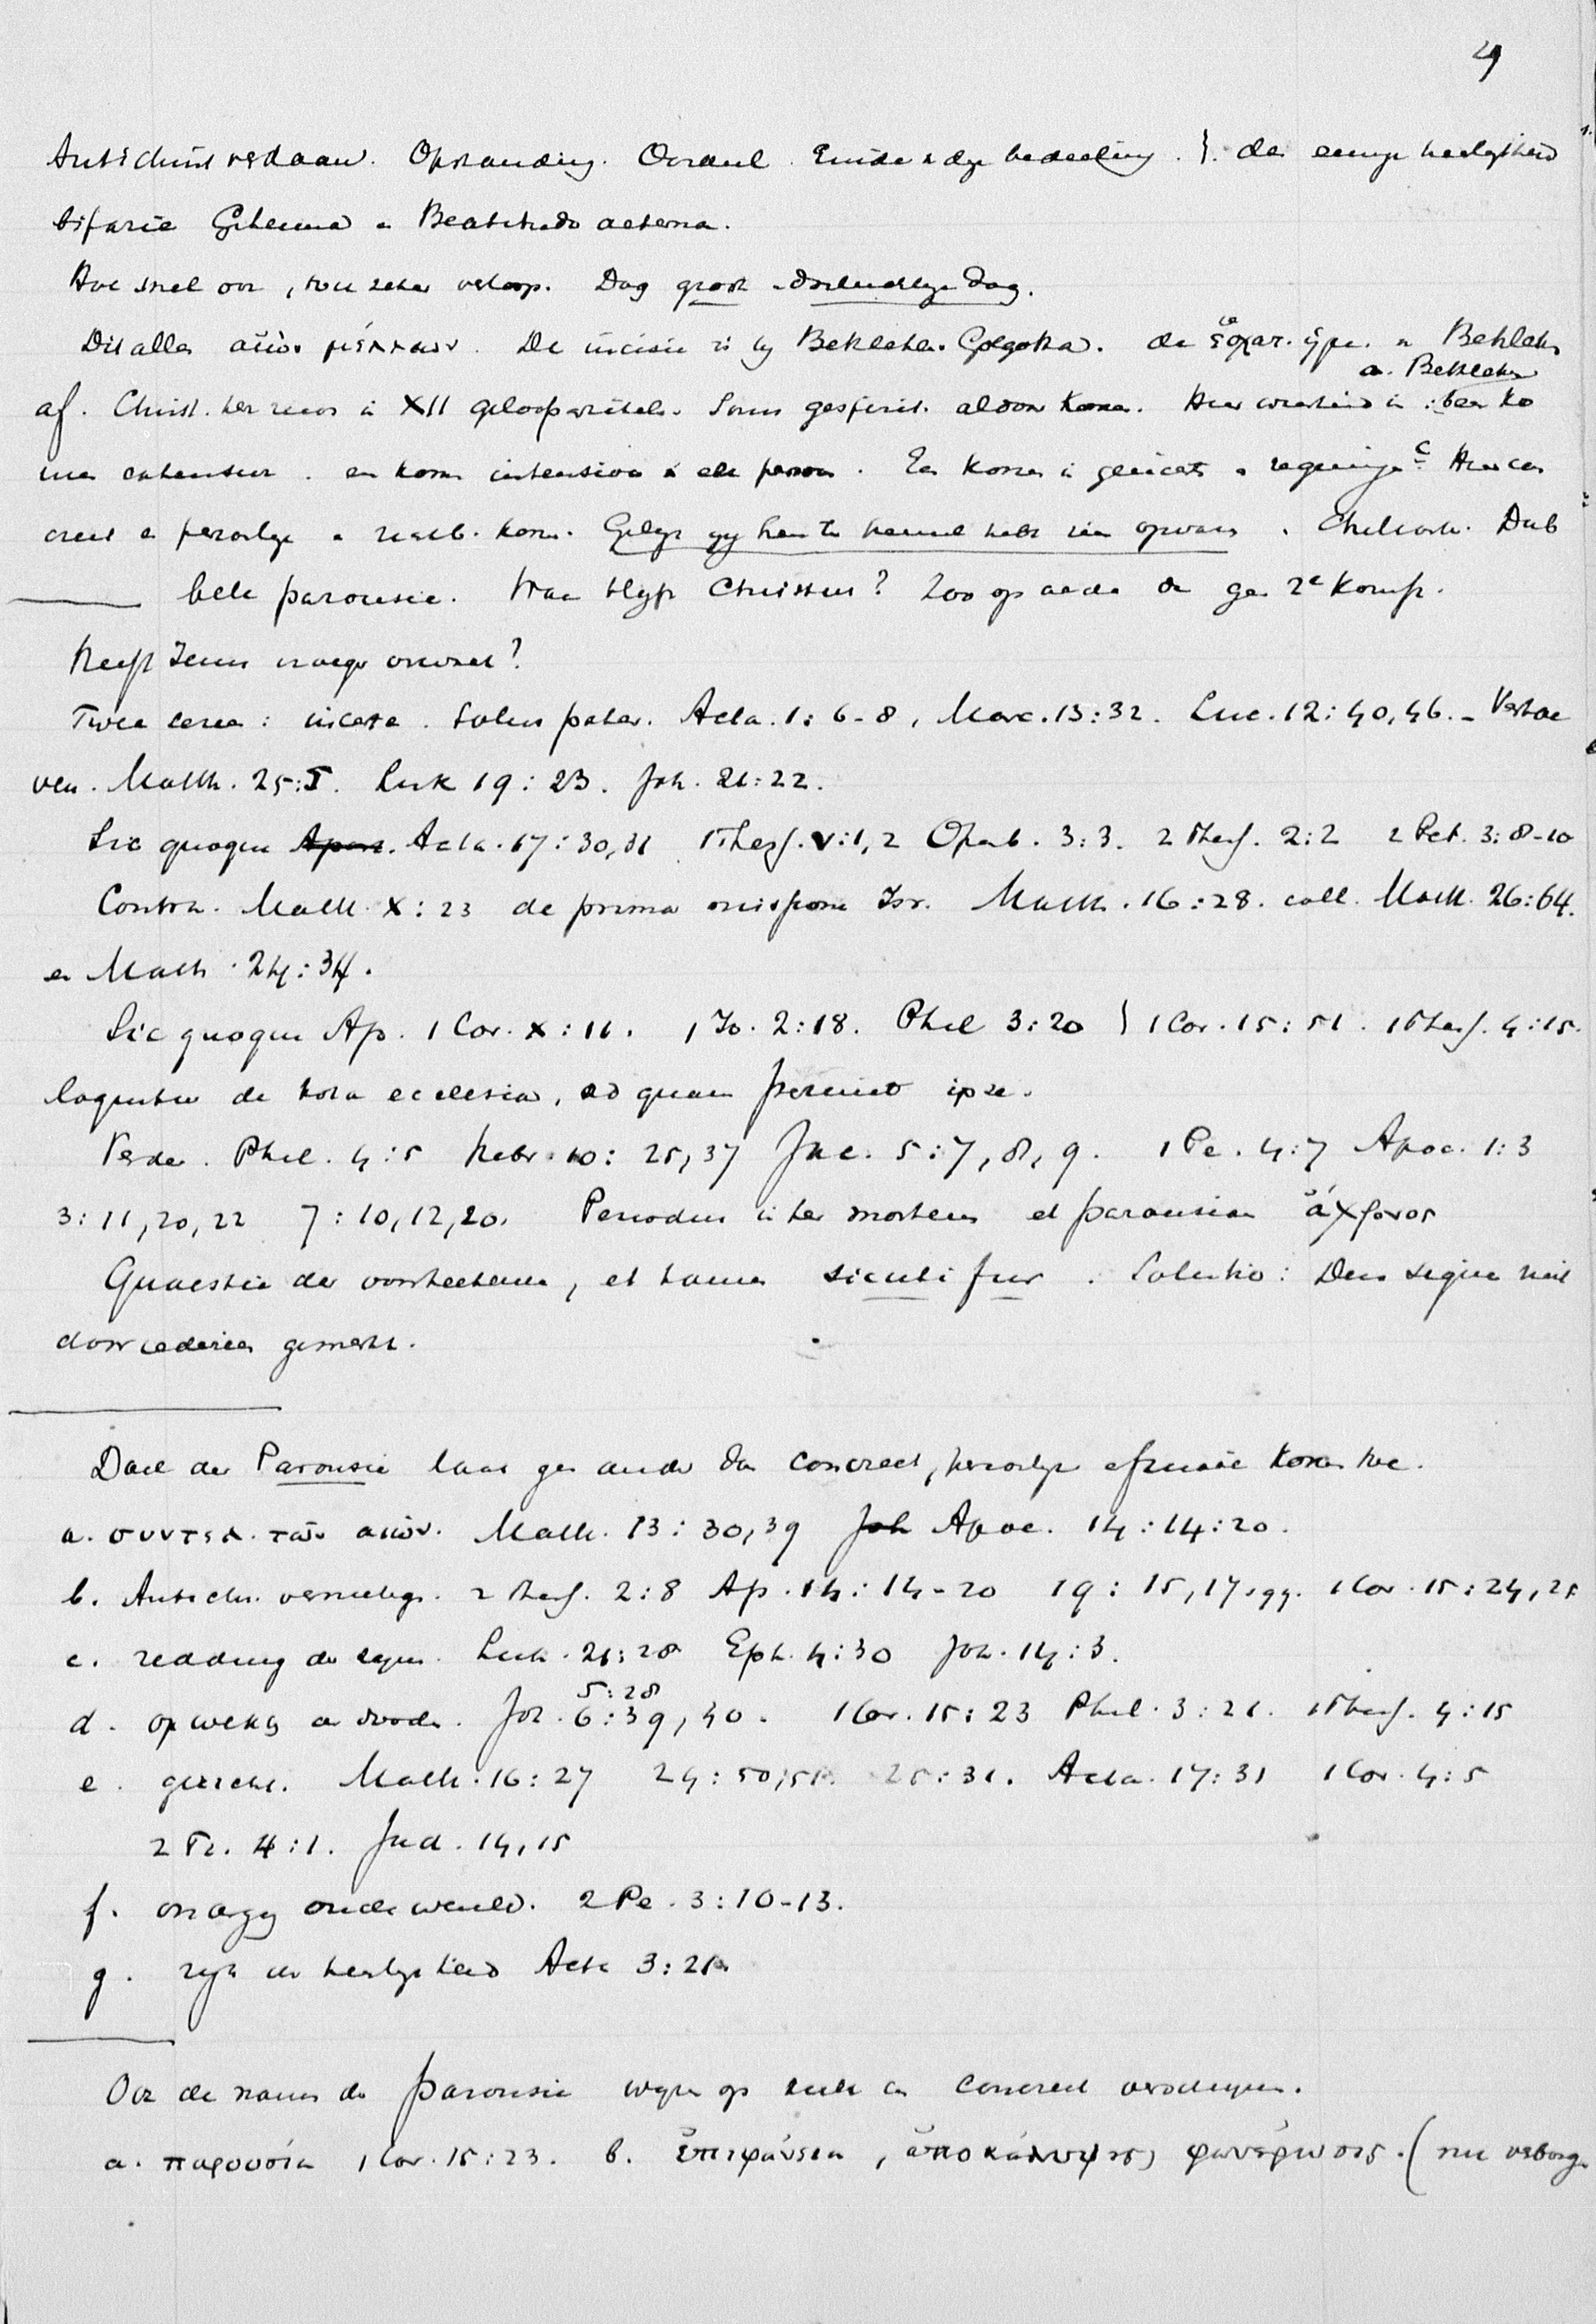 4
Antichrist verdaan. Opstanding. Oordeel. Einde dezer bedeeling. }. der eeuwige heerlijkheid
bifarie Gehenna en Beatitudo aeterna.
Hoe snel ook, toch zeker verloop. Dag groot - doorluchtige dag.
Dit alles αἰὼν μέλλων. De incisie is bij Bethlehem Golgotha. de ἐσχατ. ἡμε. a Bethlehem
a. Bethlehem
af. Christ. ter in XII geloofsartikelen. Soms gesplitst. aldoor Komen. Hier in: een ko
men extensive. en komen intensive. Een komen in gericht en
en persoonlijk en zichtb. komen. Gelijk gij hem ten hemel hebt zien opvaren. Chiliasten. Dub
bele parousie. Waar blijft Christus? Zoo op aarde dan geen 2e komst.
Heeft Jezus
Twee : incerta. Solus pater. Acta. 1:6-8, Marc. 13:32. Luc. 12:40,46. - Vertoe
ven. Matth. 25:5. Luk 19:23. Joh. 21:22.
Sic quoque Apoc. Acta. 17:30,31 1 Thess. V:1,2 Openb. 3:3. 2 Thess. 2:2 2 Pet. 3:8-10
Contra. Matth. X:23 de prima missione Isr. Matth. 16:28. coll. Matth. 26:64.
en Matth. 24:34.
Sic quoque Ap. 1 Cor. X:11. 1 Jo. 2:18. Phil 3:20 } 1 Cor. 15:51. 1 Thess. 4:15.
loquuntur de tota ecclesia, ad quam pertinet ipse.
Verder. Phil. 4:5 Hebr. 10:25,37 Jac. 5:7,8,9. 1 Pe. 4:7 Apoc. 1:3
3:11,20,22 7:10,12,20. Periodus inter mortem et parousian ἄχρονος
Quaestie der voorteekenen, et tamen sicuti fur. Solutio: Deze signa niet
door iedereen gemerkt.
Doel der Parousie laat geen ander dan concreet, persoonlijk komen toe.
a. συντελ. τῶν αἰών. Matth. 13:30,39 Joh Apoc. 14:14:20.
b. Antichr. vernietig. 2 Thess. 2:8 Ap. 14:14-20 19:15,17.qq. 1 Cor. 15:24,25
c. redding der zijnen. Luk. 21:28 Eph. 4:30 Joh. 14:3.
5:28
d. opwekk. der dooden. Joh. 6:39,40. 1 Cor. 15:23 Phil. 3:21. 1 Thess. 4:15
e. gericht. Matth. 16:27 24:50,51. 25:31. Acta. 17:31 1 Cor. 4:5
2 Ti. 4:1. Jud. 14,15
f. onderg. oude wereld. 2 Pe. 3:10-13.
g. rijk der heerlijkheid Acta 3:21
Ook de namen der parousie wijzen op zulk een concreet verschijnen.
a. παρουσία 1 Cor. 15:23. b. ἐπιφάνεια, ἀποκάλυψις, φανέρωσις. (nu verborgen